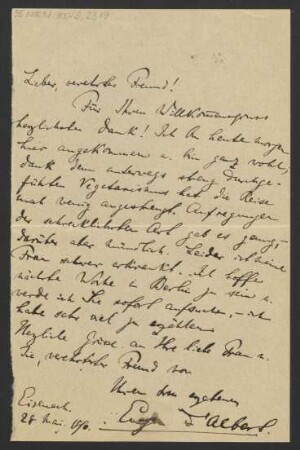 Lieber, verehrter Freund!
Für Ihren Willkommgruss
herzlichsten Dank! Ich bin heute morgen
hier angekommen u. bin ganz wohl,
dank dem unterwegs streng durchge-
führten Vegetarismus hat die Reise
mich wenig angestrengt. Aufregungen
der schrecklichsten Art gab es genug -
darüber aber mündlich. Leider ist meine
Frau schwer erkrankt. Ich hoffe
nächste Woche in Berlin zu sein u.
werde ich Sie sofort aufsuchen, - ich
habe sehr viel zu erzählen.
Herzliche Grüsse an Ihre liebe Frau u.
Sie, verehrter Freund von
Ihrem treu ergebenen
Eugen d'Albert.
Eisenach,
28 Mai